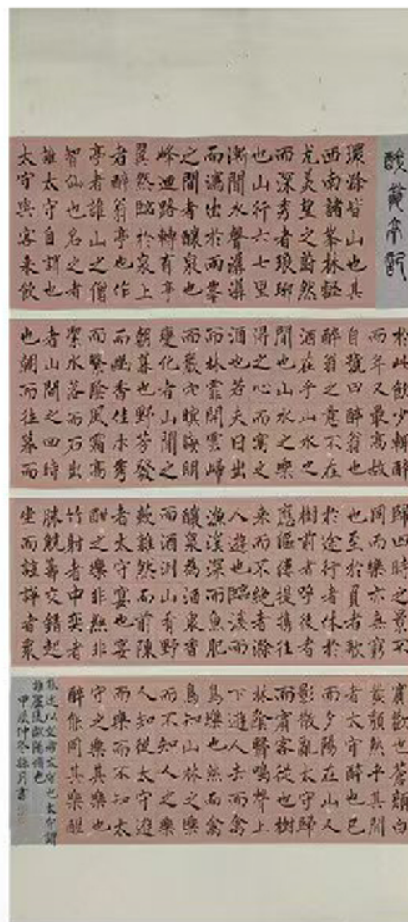 醉翁亭記
環滁皆山也其
西南諸峯林壑
尤美望之蔚然
而深秀者琅琊
也山行六七里
漸聞水聲潺潺
而瀉出於兩峯
之間者釀泉也
峰迴路轉有亭
翼然臨於泉上
者醉翁亭也作
亭者誰山之僧
智仙也名之者
誰太守自謂也
太守與客來飲
於此飲少輒醉
而年又最高故
自號曰醉翁也
醉翁之意不在
酒在乎山水之
間也山水之樂
得之心而寓之
酒也若夫日出
而林霏開雲歸
而巖穴暝晦明
變化者山間之
朝暮也野芳發
而幽香佳木秀
而繁陰風霜高
潔水落而石出
者山間之四時
也朝而往暮而
歸四時之景不
同而樂亦無窮
也至於負者歌
於途行者休於
樹前者呼後者
應傴僂提攜往
來而不絕者滁
人遊也臨溪而
漁溪深而魚肥
釀泉為酒泉香
而酒洌山肴野
蔌雜然而前陳
者太守宴也宴
酣之樂非絲非
竹射者中奕者
勝觥籌交錯起
坐而諠譁者衆
賓歡也蒼顏白
髮頹然乎其間
者太守醉也已
而夕陽在山人
影散亂太守歸
而賓客從也樹
林陰翳鳴聲上
下遊人去而禽
鳥樂也然而禽
鳥知山林之樂
而不知人之樂
人知從太守遊
而樂而不知太
守之樂其樂也
醉能同其樂醒
能述以文者太守也太守謂
誰廬陵歐陽修也
甲辰仲冬 月書